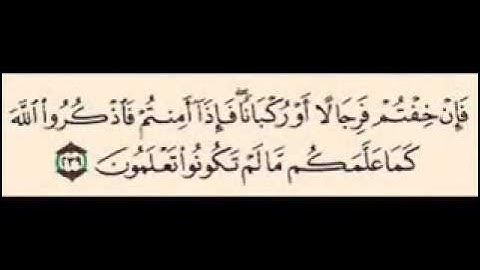 فَإِنْ خِفْتُمْ فَرِجَالًا أَوْ رُكْبَانًا ۖ فَإِذَآ أَمِنتُمْ فَٱذْكُرُوا۟ ٱللَّهَ
كَمَا عَلَّمَكُم مَّا لَمْ تَكُونُوا۟ تَعْلَمُونَ ٢٣٩